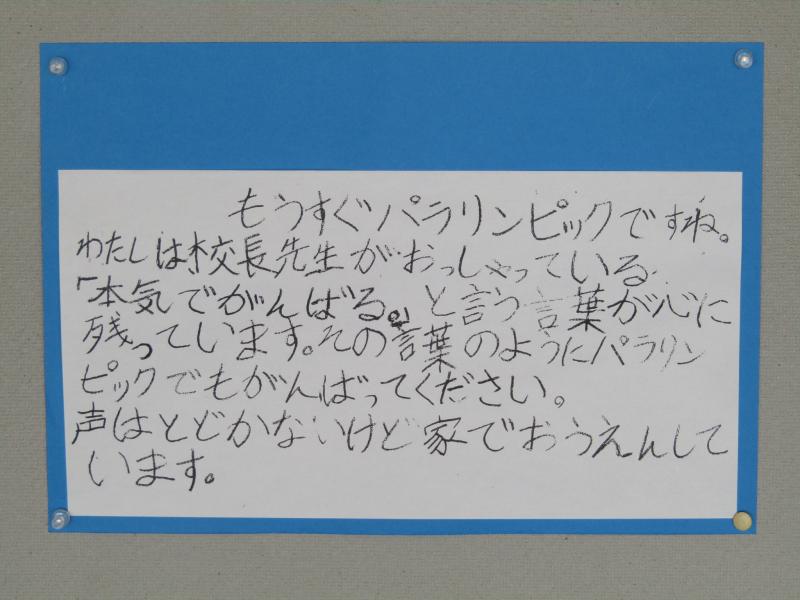 もうすぐパラリンピックですね。
わたしは校長先生がおっしゃっている
「本気でがんばる。」と言う言葉が心に
残っています。その言葉のようにパラリン
ピックでもがんばってください。
声はとどかないけど家でおうえんして
います。